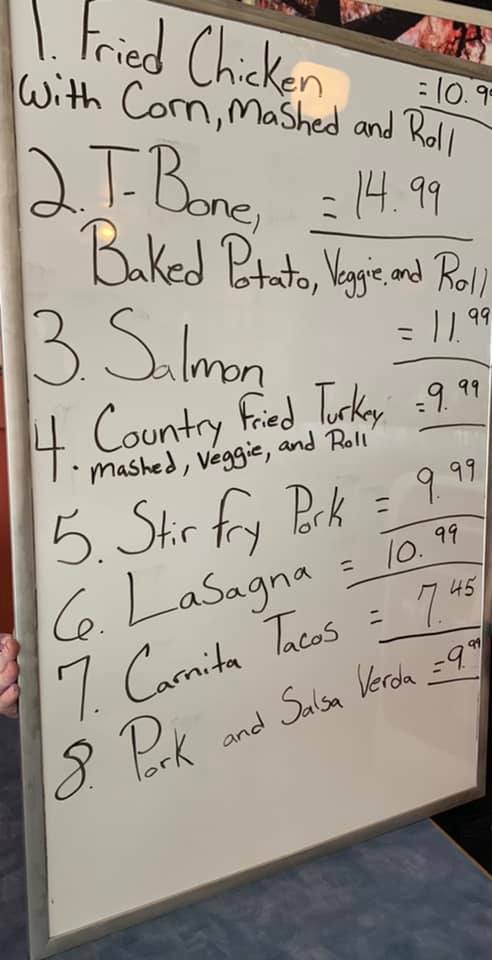 1. Fried Chicken = 10.9
With Corn, Mashed and Roll
2. T-Bone, = 14.99
Baked Potato, Veggie, and Roll
3. Salmon = 11.99
4. Country Fried Turkey = 9.99
Mashed, Veggie, and Roll
5. Stir fry Pork = 9.99
6. Lasagna = 10.99
7. Carnita Tacos = 7.45
8. Pork and Salsa Verda = 9.99